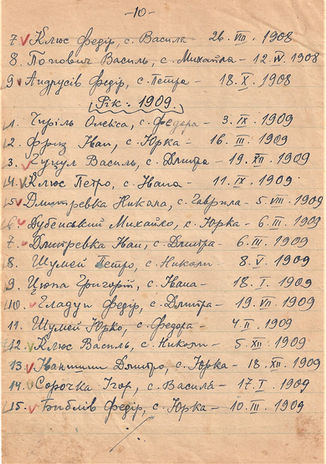 -10-
7. Клюс Федір, с. Василь - 26. VIII. 1908
8. Попович Василь, с. Михайла - 12. IV 1908
9. Андрусів Федір, с. Петра - 18. X. 1908
Рік: 1909.
1. Чиріль Олекса, с. Федора - 3. IX. 1909
2. Фриз Іван, с. Юрка - 16. III. 1909
3. Цукул Василь, с. Дмитра - 19. XII. 1909
4. Клюс Петро, с. Івана - 11. IX. 1909
5. Дмитревка Никола, с. Гаврила - 5. VIII. 1909
6. Дубенський Михайло, с. Юрка - 6. III. 1909
7. Дмитревка Іван, с. Дмитра - 6. III. 1909
8. Шумей Петро, с. Николи - 8. V. 1909
9. Цюпа Григорій, с. Івана - 18. I. 1909
10. Гладун Федір, с. Дмитра - 19. VII. 1909
11. Шумей Юрко, с. Федора - 4. II. 1909
12. Клюс Василь, с. Николи - 5. XII. 1909
13. Іванишин Дмитро, с. Юрка - 18. XII. 1909
14. Сорочка Ігор, с. Василь - 17. I. 1909
15. Библів Федір, с. Юрка - 10. III. 1909